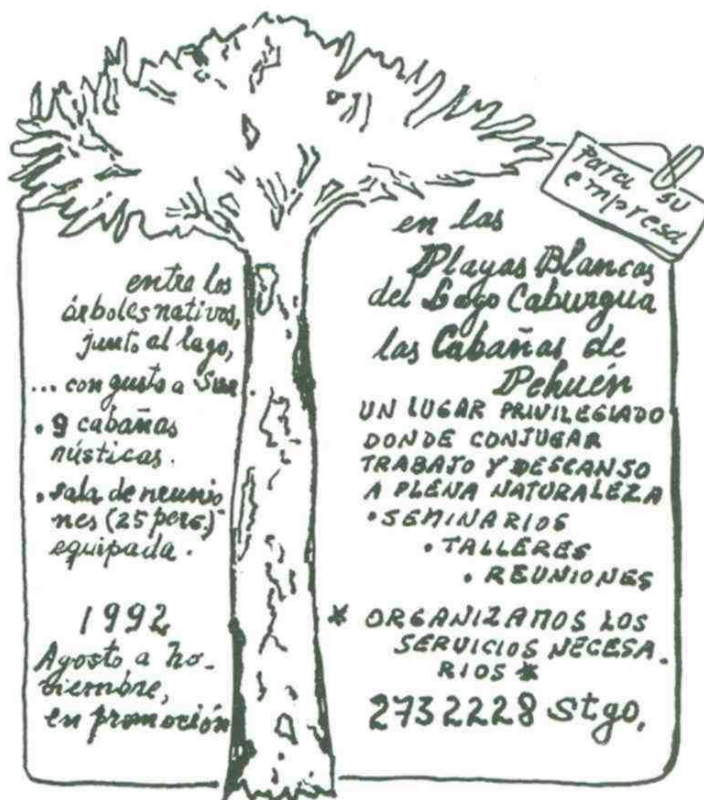 para su
empresa
entre los
árboles nativos,
junto al lago,
... con gusto a Sur.
• 9 cabañas
rústicas.
• sala de reunio
nes (25 pers.)
equipada.
1992
Agosto a no-
viembre,
en promoción
en las
Playas Blancas
del Lago Caburgua
las Cabañas de
Pehuén
UN LUGAR PRIVILEGIADO
DONDE CONJUGAR
TRABAJO Y DESCANSO
A PLENA NATURALEZA
• SEMINARIOS
• TALLERES
• REUNIONES
* ORGANIZAMOS LOS
SERVICIOS NECESA-
RIOS *
2732228 Stgo.